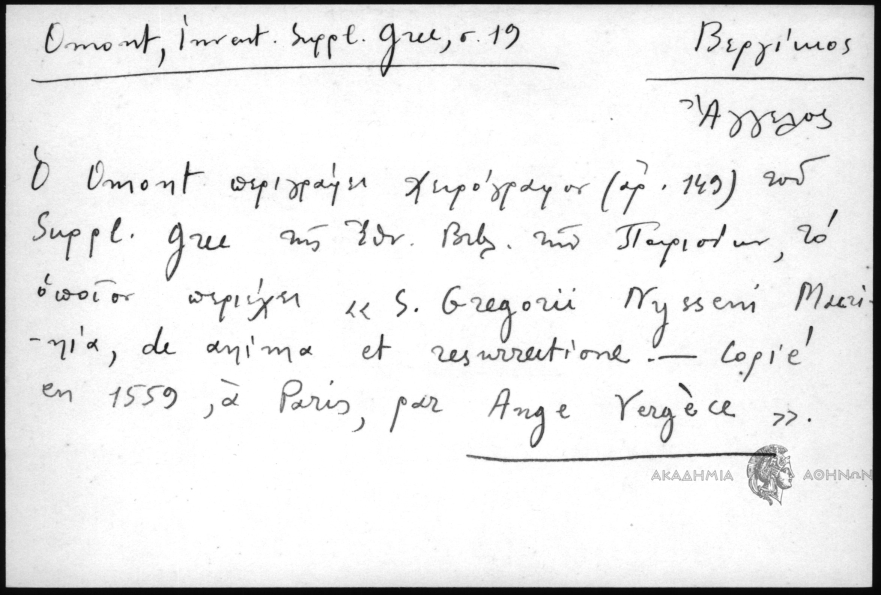 Omont, Invent. Suppl. Grec, σ. 19
Βεργίκιος
Ἄγγελος
Ὁ Omont περιγράφει χειρόγραφον (ἀρ. 149) τοῦ
Suppl. Grec τῆς Ἐθν. Βιβλ. τῶν Παρισίων, τὸ
ὁποῖον περιέχει « S. Gregorii Nysseni Macri-
-nia, de anima et resurrectione. — Copié
en 1559, à Paris, par Ange Vergèce ».
ΑΚΑΔΗΜΙΑ ΑΘΗΝΩΝ